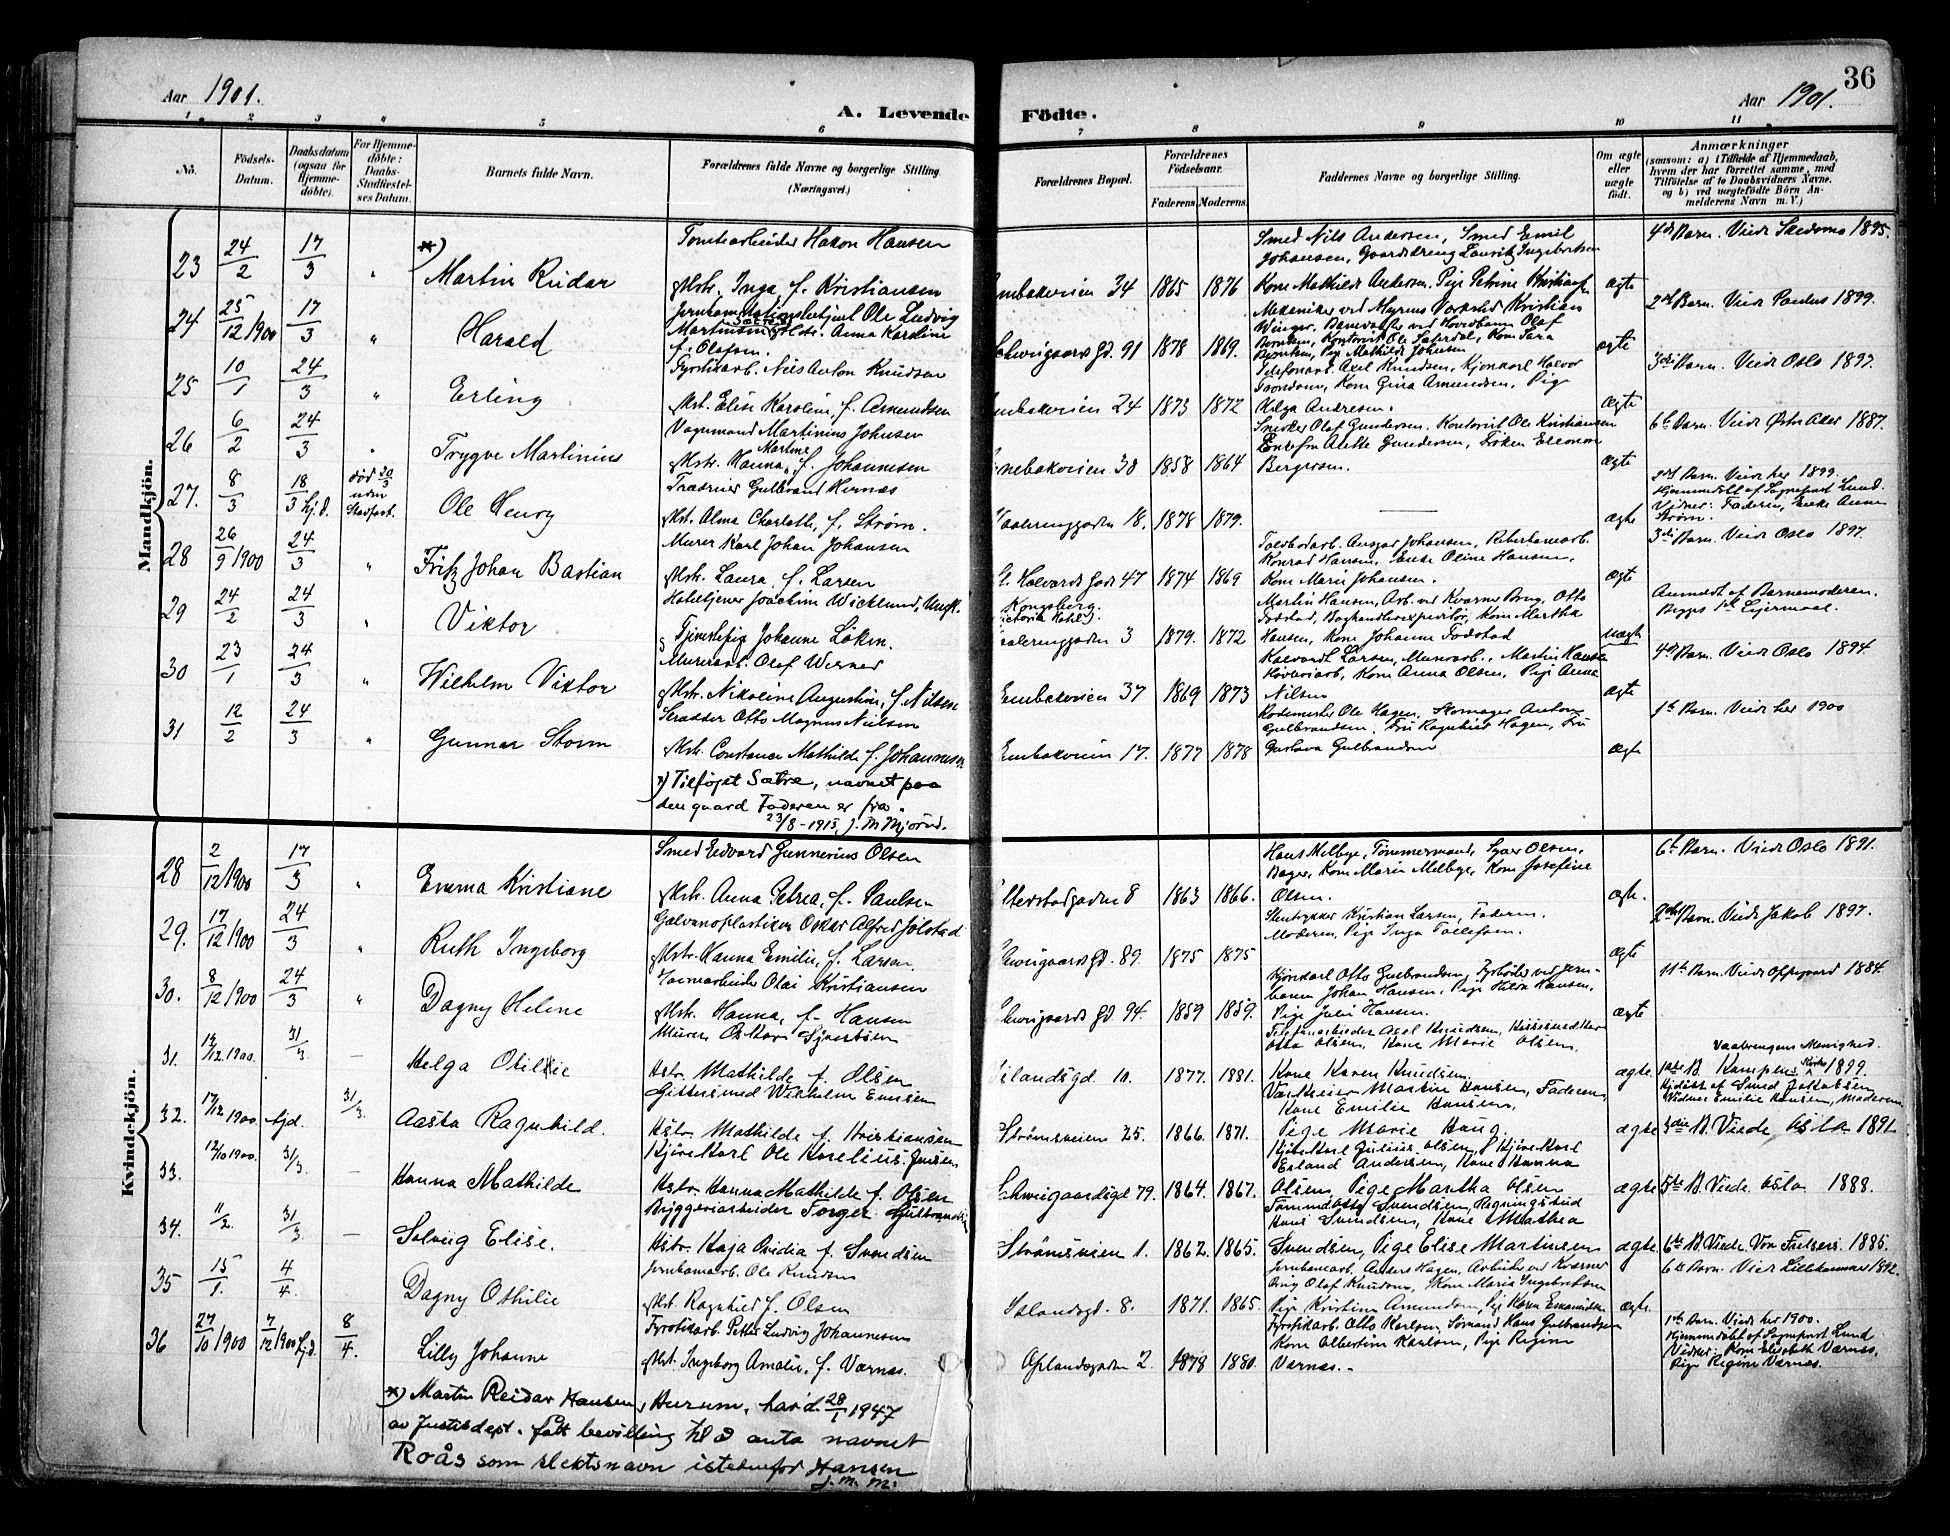 Aar 1901.
A. Levende
Födte.
Aar 1901.
36
1 2 3 4 5 6
7 8 9 10 11
No.
Födsels-Datum.
Daabsdatum (ogsaa for Hjemme-døbte).
For Hjemme-døbte: Daabs-Stadfæstel-ses Datum.
Barnets fulde Navn.
Forældrenes fulde Navne og borgerlige Stilling (Næringsvei.)
Forældrenes Bopæl.
Forældrenes Födselsaar.
Faderens. Moderens.
Faddernes Navne og borgerlige Stilling.
Om ægte eller uægte født.
Anmærkninger
(saasom: a) i Tilfælde af Hjemmedaab, hvem der har forrettet samme, med Tilföielse af to Daabsvidners Navne, og b) ved uægtefödte Börn An-melderens Navn m.V.)
Mandkjön.
23 24/2 17/3 " *) Martin Reidar
Tomtearbeider Hakon Hansen
Hstr. Inga f. Kristiansen
34 1865 1876
Smed Nils Andersen, Smed Emil
Johansen, Gaardsdreng Lauritz Ingebretsen
Kone Mathilde Andersen, Pige Petrine
ægte
4de Barn. Viede 1895.
24 25/12 1900 17/3 " Harald
Jernbanestationsbetjent Ole Ludvig
Martinsen Hstr. Anna Karoline
f. Olafsen.
Schweigaards Gd. 91 1878 1869.
Mekaniker ved Myrens Værksted Kristian
Winger, ved Hovedbanen Olaf
Berntsen, Kontorist Ole Sæterdal, Kone Sara
Berntsen, Pige Mathilde Johnsen
ægte
2det Barn. Viede Paulus 1899.
25 10/1 24/3 " Erling
Fyrstikarb. Nils Anton Knudsen
Hstr. Elise Karoline, f. Amundsen
24 1873 1872
Telefonarb. Axel Knudsen, Kjørekarl Halvor
Kone Gina Amundsen, Pige
Helga Andresen.
ægte
3die Barn. Viede Oslo 1897.
26 6/2 24/3 " Trygve Martinius
Vognmand Martinius Johnsen
Hstr. Hanna Martine, f. Johannesen
30 1858 1864
Snedker Olaf Gundersen, Kontorist Ole Kristiansen
Enkefru Anette Gundersen, Frøken Eleonora
Bergersen.
ægte
6te Barn. Viede Østre Aker 1887.
27. 8/3 18/3 hjd. død 20/3 uden Stadfæst. Ole Henry
Trædreier Gulbrand Hernæs
Hst. Alma Charlotte, f. Strøm.
Vaalerenggaden 18. 1878 1879.
ægte
2det Barn. Viede her 1899.
Hjemmedøbt af Sognepræst Lund.
Vidner: Faderen, Enke Anna
Strøm.
28 26/9 1900 24/3 " Fritz Johan Bastian
Murer Karl Johan Johansen
Hstr. Laura, f. Larsen
St. Halvards Gade 47 1874 1869
Toldbodarb. Ansgar Johansen, Reberbanearb.
Konrad Hansen, Enke Oline Hansen,
Kone Marie Johansen.
ægte
3die Barn. Viede Oslo 1897.
29 24/2 24/3 " Viktor
Hoteltjener Joachim Wicklund, Ungk.
Tjenestepige Johanne Løken
Kongsberg.
(Victoria Hotel)
Vaalerenggaden 3 1879. 1872
Martin Hansen, Arb. ved Kværner Brug, Otto
Fodstad, Boghandlerexpeditør, Kone Martha
Hansen, Kone Johanne Fodstad
uægte
Anmeldt af Barnemoderen.
Begges 1ste Leiermaal.
30 23/1 24/3 " Wilhelm Viktor
Murerarb. Olaf Werner
Hstr. Nikoline Augustine, f. Nilsen
Enebakveien 37 1869 1873
Halvardt Larsen, Murerarb., Martin Hansen
Høvleriarb., Kone Anna Olsen, Pige Anna
Nilsen
ægte
4de Barn. Viede Oslo 1894.
31 12/2 24/3 " Gunnar Storm
Skrædder Otto Magnus Nielsen
Hstr. Constance Mathilde f. Johannesen
Enebakveien 17. 1877 1878
Rodemester Ole Hagen, Skomager Anton
Gulbrandsen, Fru Ragnhild Hagen, Fru
Gustava Gulbrandsen
ægte
1ste Barn. Viede her 1900
x) Tilføjet Sætre, navnet paa
den gaard Faderen er fra.
23/8-1915, J. M. Mjørud.
Kvindekjön.
28 2/12 1900 17/3 " Emma Kristiane
Smed Edvard Gunnerius Olsen
Hstr. Anna Petrea, f. Paulsen
8 1863 1866.
Hans Melbye, Tømmermand, Syver Olsen,
Bager, Kone Marie Melbye, Kone Josefine
Olsen.
ægte.
6te Barn. Viede Oslo 1891.
29. 17/12 1900 24/3 " Ruth Ingeborg
Galvanoplastiker Oskar Alfred Jölstad
Hstr. Hanna Emilie, f. Larsen.
Schweigaards Gd. 89. 1875 1875
Stentrykker Kristian Larsen, Faderen.
Moderen, Pige Inga Tollefsen.
ægte
2det Barn. Viede Jakob 1897.
30. 8/12 1900 24/3 " Dagny Helene
Olai Kristiansen
Hstr. Hanna, f. Hansen
Schweigaards Gd 94. 1859 1859.
Kjørekarl Otto Gulbrandsen, Fyrbøder ved Jern-
banen Johan Hansen, Pige Hilda Hansen,
Pige Julie Hansen.
ægte
11te Barn. Viede Oppegaard 1884.
31. 12/12 1900. 31/3 — Helga Otilie
Murer Oskar Syvertsen
Hstr. Mathilde f. Olsen
10. 1877. 1881.
Telefonarbeider Axel Knudsen,
Otto Olsen, Kone Marie Olsen.
Kone Karen Knudsen.
ægte.
Vaalerengens Menighed.
1ste B. Kampens Kirke 1899.
32. 17/12 1900. hjd. 31/3. Aasta Ragnhild.
Gjørtlersmed Wilhelm Evensen
Hstr. Mathilde f. Kristiansen
Strømsveien 25. 1866. 1871.
Martin Hansen, Faderen,
Kone Emilie Hansen,
Pige Marie Haug.
ægte
Hjdøbt af Smed Jakobsen
Vidner Emilie Hansen, Moderen.
3die B. Viede Oslo 1891
33. 12/10 1900. 31/3. — Hanna Mathilde
Kjørekarl Ole Kornelius Jensen
Hstr. Hanna Mathilde f. Olsen
Schweigaardsgd 79. 1864. 1867.
Kjørekarl Julius Olsen, Kjørekarl
Erland Andersen, Kone Hanna
Olsen, Pige Martha Olsen
ægte
5te B. Viede Oslo 1888.
34. 11/2. 31/3 — Solveig Elise.
Bryggeriarbeider Torger Gulbrandsen
Hstr. Kaja Ovidia f. Svendsen
Strømsveien 1. 1862. 1865.
Svendsen, Regningsbud
Hans Svendsen, Kone Mathea
Svendsen, Pige Elise Martinsen
ægte.
6te B. Viede Vor Frelsers. 1885.
35 15/1. 4/4 Dagny Othilie
Jernbanearb. Ole Knudsen
Hst. Ragnhild f. Olsen
Islandsgd. 8. 1871. 1865.
Jernbanearb. Anders Hagen, Arbeider ved Kværner
Brug Olaf Knudsen, Kone Maria Ingebretsen
Pige Kristine Amundsen, Pige Karen
ægte.
6te Barn. Viede Lillehammer 1892.
36 27/10 1900 7/12 1900 hjd. 8/4. Lilly Johanne
Fyrstikarb. Petter Ludvig Johannesen
Hst. Ingeborg Amalie, f. Værnæs.
Oplandsgaden 2. 1878 1880.
Fyrstikarb. Otto Karlsen, Sömand Hans Gulbrandsen
Kone Albertine Karlsen, Pige Regine
Værnæs.
1ste Barn. Viede her 1900.
Hjemmedøbt af Sognepræst Lund
Vidner: Kone Elisabeth Værnæs,
Pige Regine Værnæs.
*) Martin Reidar Hansen, Hurum, har d. 28/1 1947
av Justisdept. fått bevilling til å anta navnet
Roås som slektsnavn istedenfor Hansen
J. M. M.